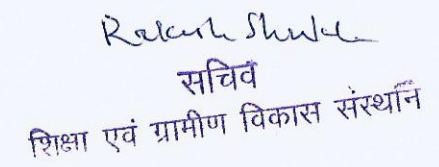 Rakesh Shukla
सचिव
शिक्षा एवं ग्रामीण विकास संस्थान